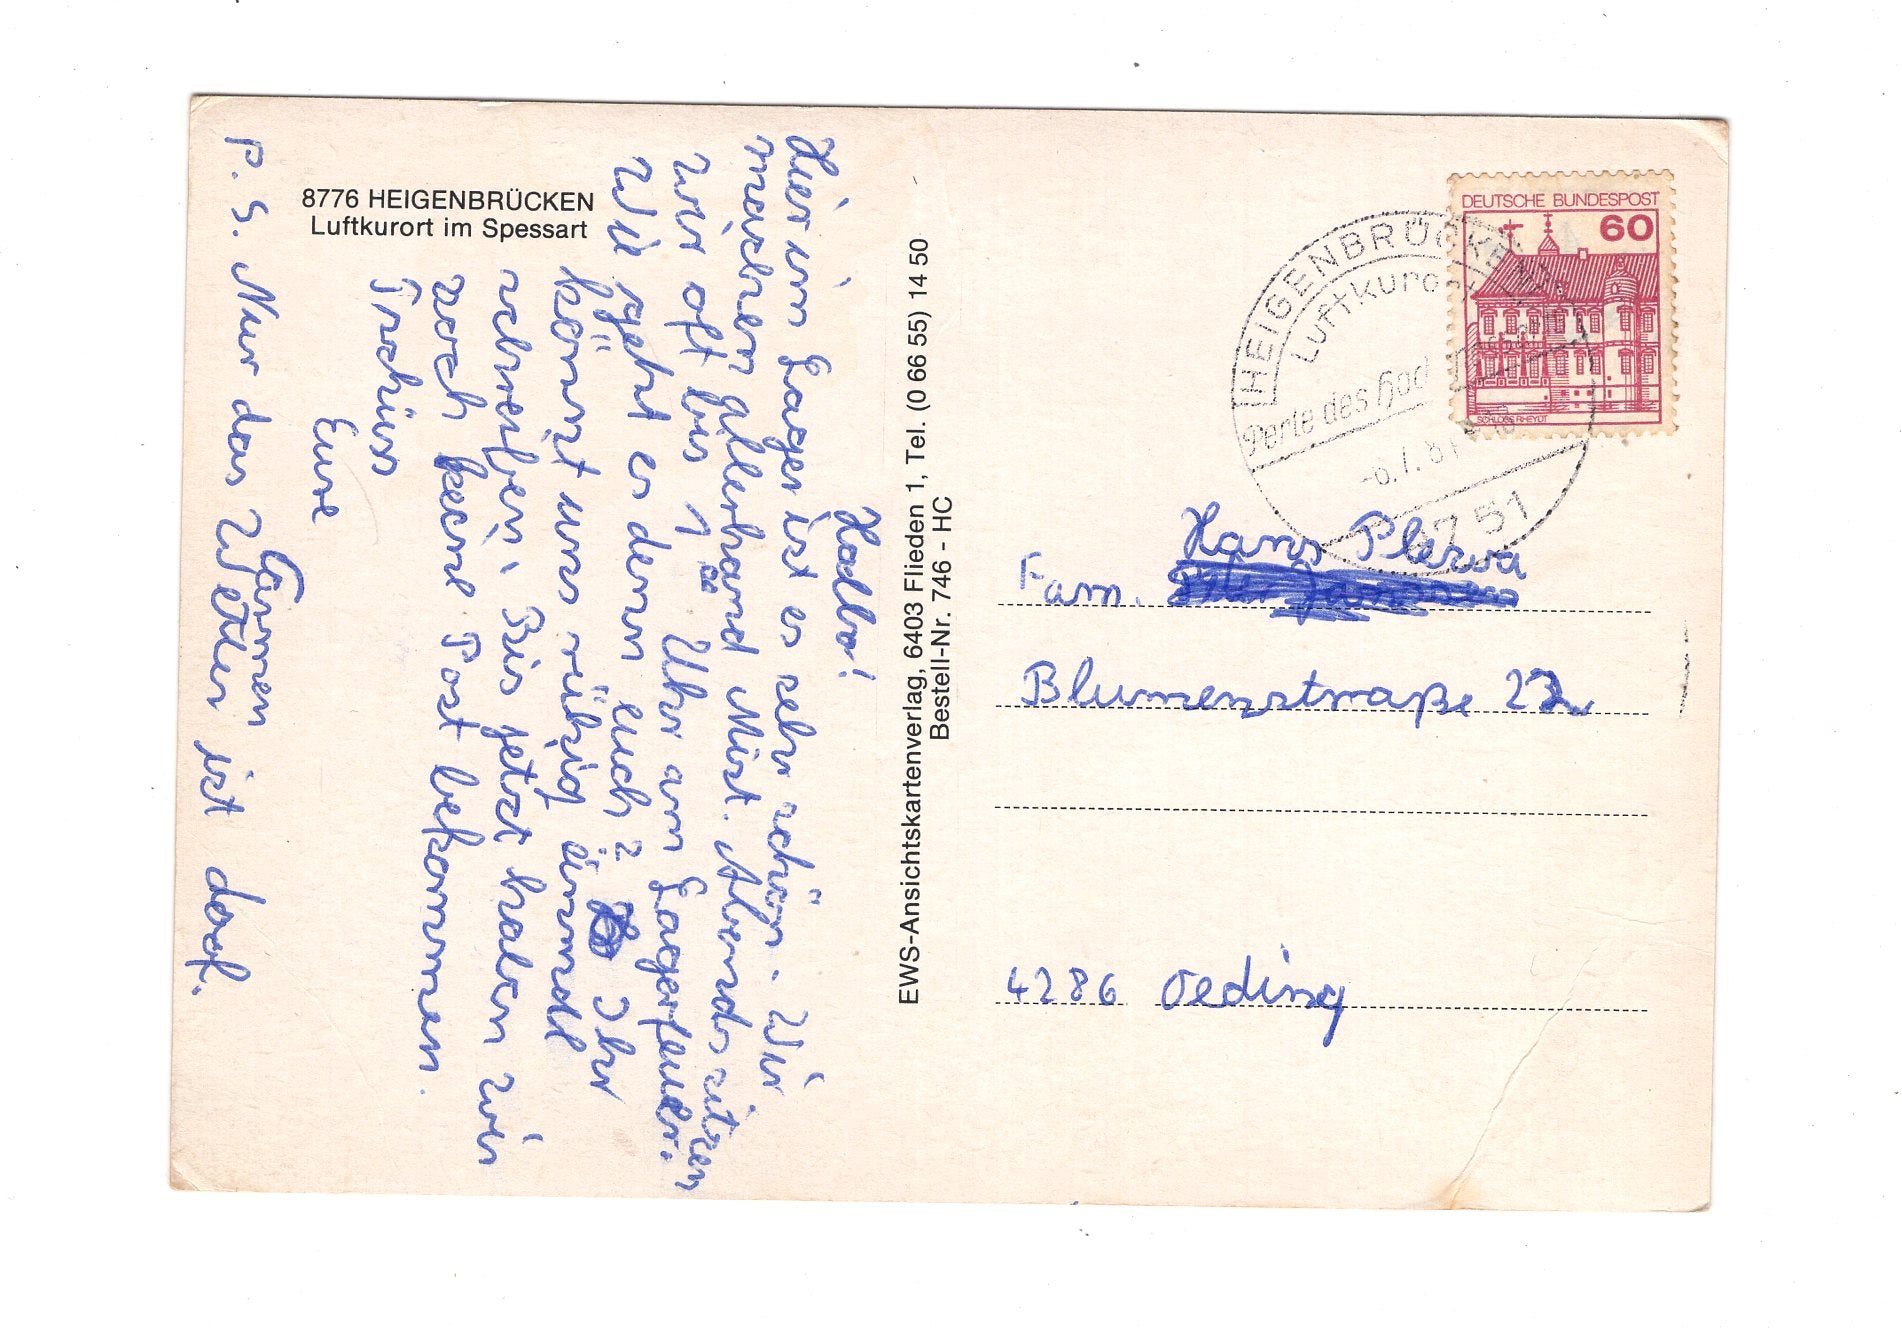 8776 HEIGENBRÜCKEN
Luftkurort im Spessart
Hallo!
Hier im Lager ist es sehr schön. Wir
machen allerhand Mist. Abends sitzen
wir oft bis 1°° Uhr am Lagerfeuer.
Wie geht es denn euch? Ihr
könnt uns rühig einmal
schreiben. Bis jetzt haben wir
noch keine Post bekommen.
Tschüss
Eure
Carmen
P.S. Nur das Wetter ist doof.
EWS-Ansichtskartenverlag, 6403 Flieden 1, Tel. (0 66 55) 14 50
Bestell-Nr. 746 - HC
DEUTSCHE BUNDESPOST
60
SCHLOSS RHEYDT
HEIGENBRÜCKEN
Luftkurort
Perle des
8751
Fam. Hans Plewa
Blumenstraße
4286 Oeding